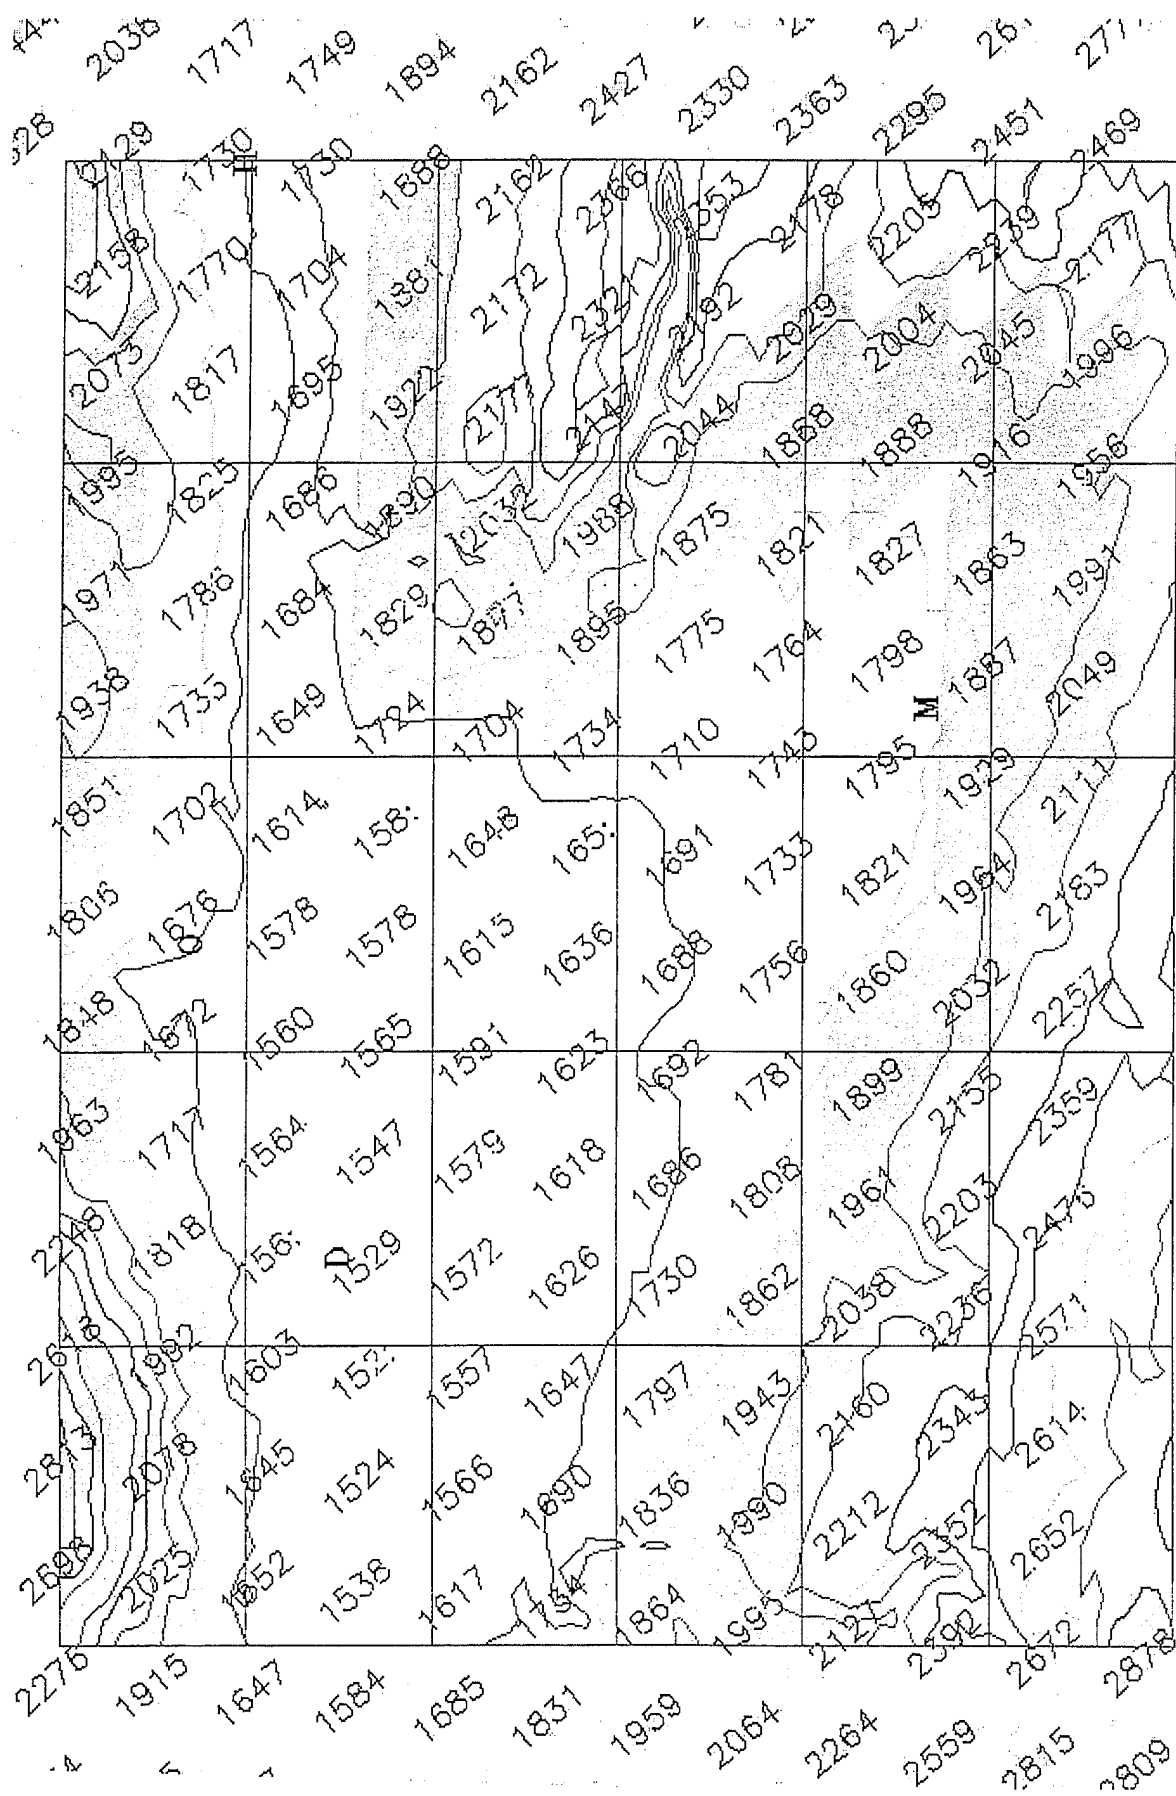 2036 1717 1749 1894 2162 2427 2330 2363 2295 2451 2469
2129 1730 H 1730 1888 2162 2366 2178 2205 2239 2177
2158 1770 1704 1881 2172 2321 2192 2029 2004 2045 1996
2073 1817 1695 1922 2177 2142 2044 1868 1888 1916 1956
1995 1825 1686 1890 2032 1988 1875 1821 1827 1863 1991
1971 1786 1684 1829 1877 1895 1775 1764 1798 1887 2049
1938 1735 1649 1724 1704 1734 1710 1743 1795 M 1929 2111
1851 1702 1614 1646 1691 1733 1821 1964 2183
1806 1676 1578 1578 1615 1636 1688 1756 1860 2032 2257
1848 1672 1560 1565 1591 1623 1692 1781 1899 2155 2359
1963 1717 1564 1547 1579 1618 1686 1808 1961 2203 2476
2248 1818 D 1529 1572 1626 1730 1862 2038 2236 2571
1992 1603 1557 1647 1797 1943 2160 2343 2614
2813 2078 1645 1524 1566 1690 1836 1990 2212 2352 2652
2698 2025 1652 1538 1617 1764 1864 1995 2127 2392 2672 2878
2276 1915 1647 1584 1685 1831 1959 2064 2264 2559 2815 2809